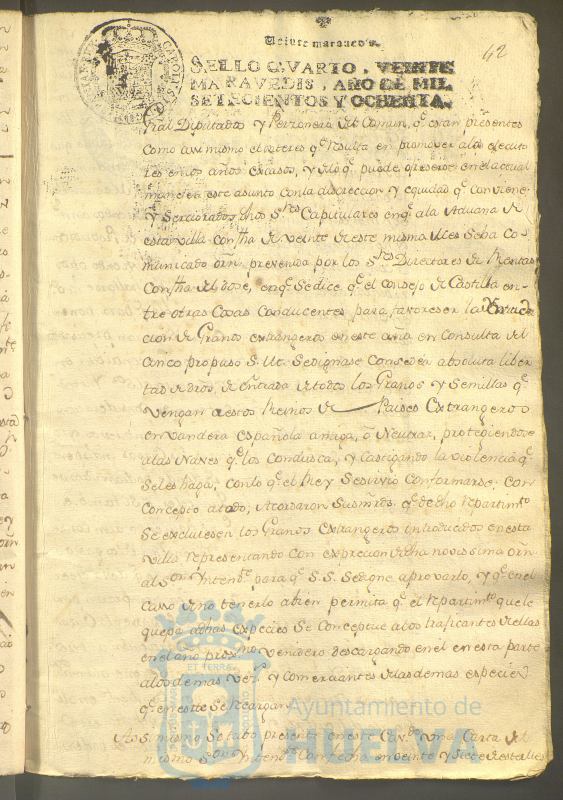 Veinte maravedis.
62
SELLO QVARTO, VEINTE
MARAVEDIS, AÑO DE MIL
SETECIENTOS Y OCHENTA.
Diputados y Personero del Comun, q.e estan presentes
como asi mismo el interes q.e resulta en promover a los
res en los años escasos, y de lo q.e puede ofrecerse en el actual
maneje este asunto con la discrecion y equidad q.e conviene
Y Serciorados dhos S.res Capitulares en q.e a la Aduana de
esta villa con fha de veinte de este mismo Mes se ha co
municado orñ prevenida por los S.res Directores de Rentas
con fha del doze, en q.e se dice q.e el consejo de Castilla en
tre otras Cosas conducentes para favoreser la
cion de Granos extrangeros en este año en Consulta del
cinco propuso S. M. se dignase conseder absoluta liber
tad de dros, de entrada de todos los Granos y Semillas q.e
vengan a estos Reinos de Paises Extrangeros
en vandera española amiga, ò Neutral, protegiendose
a las Naves q.e los conduscan, y castigando la violencia q.e
se les haga, con lo q.e el Rey se sirvio conformarse; con
Concepto a todo, Acordaron sus mrds, q.e de dho repartim.to
se excluiesen los Granos extrangeros introducidos en esta
villa representando con exprecion dicha novissima orñ
al S.or Yntend.te para q.e S.S. se digne aprovarlo, y q.e en el
Casso de no tenerlo a bien permita q.e el repartim.to que le
quepa a dhas especies se conceptue a los traficantes de ellas
en el año prox.mo venidero descargando en el en esta parte
a los demas vez.s y comerciantes de las demas especies
q.e en este se recargan
Asi mismo se hizo presente en este Cav.do una Carta del
mismo S.or Yntend.te con fecha en veinte y siete de este Mes
Ayuntamiento de
HUELVA